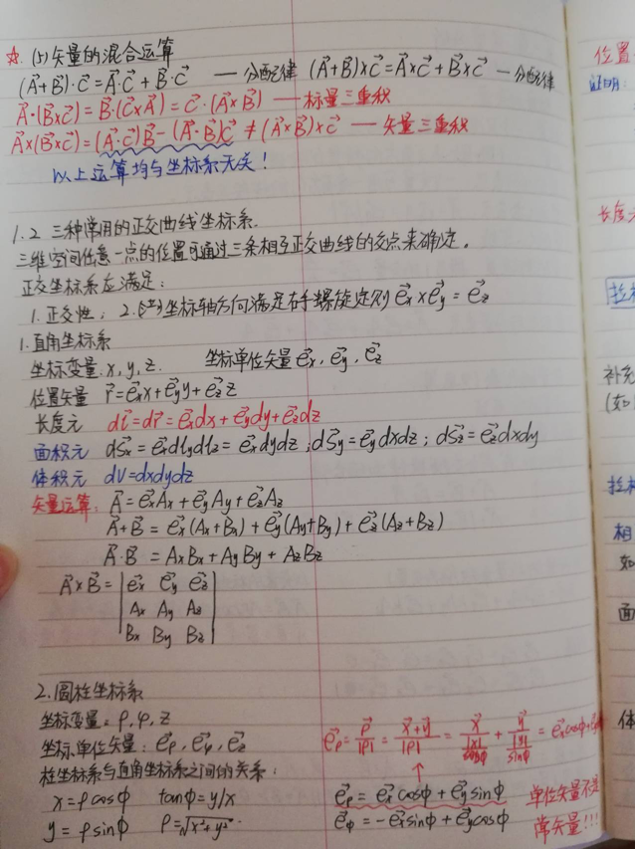 ☆ (5)矢量的混合运算
(A⃗+B⃗)·C⃗=A⃗·C⃗+B⃗·C⃗ —分配律 (A⃗+B⃗)×C⃗=A⃗×C⃗+B⃗×C⃗ —分配律
A⃗·(B⃗×C⃗)=B⃗·(C⃗×A⃗)=C⃗·(A⃗×B⃗) —标量三重积
A⃗×(B⃗×C⃗)=(A⃗·C⃗)B⃗-(A⃗·B⃗)C⃗≠(A⃗×B⃗)×C⃗ —矢量三重积
以上运算均与坐标系无关!
1.2 三种常用的正交曲线坐标系.
三维空间任意一点的位置可通过三条相互正交曲线的交点来确定。
正交坐标系应满足:
1.正交性; 2.坐标轴方向满足右手螺旋定则 e⃗x×e⃗y=e⃗z
1.直角坐标系
坐标变量.x,y,z. 坐标单位矢量e⃗x,e⃗y,e⃗z
位置矢量 r⃗=e⃗xx+e⃗yy+e⃗zz
长度元 dl⃗=dr⃗=e⃗xdx+e⃗ydy+e⃗zdz
面积元 dS⃗x=e⃗xdlydlz=e⃗xdydz;dS⃗y=e⃗ydxdz;dS⃗z=e⃗zdxdy
体积元 dV=dxdydz
矢量运算: A⃗=e⃗xAx+e⃗yAy+e⃗zAz
A⃗+B⃗=e⃗x(Ax+Bx)+e⃗y(Ay+By)+e⃗z(Az+Bz)
A⃗·B⃗=AxBx+AyBy+AzBz
A⃗×B⃗=|e⃗x e⃗y e⃗z|
|Ax Ay Az|
|Bx By Bz|
2.圆柱坐标系
坐标变量:ρ,φ,z
坐标单位矢量:e⃗ρ,e⃗φ,e⃗z
e⃗ρ=ρ⃗/|ρ|=(x⃗+y⃗)/|ρ|=x⃗/(|x|/cosφ)+y⃗/(|y|/sinφ)=e⃗xcosφ+
柱坐标系与直角坐标系之间的关系:
x=ρcosφ tanφ=y/x e⃗ρ=e⃗xcosφ+e⃗ysinφ 单位矢量不是
y=ρsinφ ρ=√x²+y². e⃗φ=-e⃗xsinφ+e⃗ycosφ 常矢量!!!
位置
证明:
长度元
补充
(如
相
如
面
体